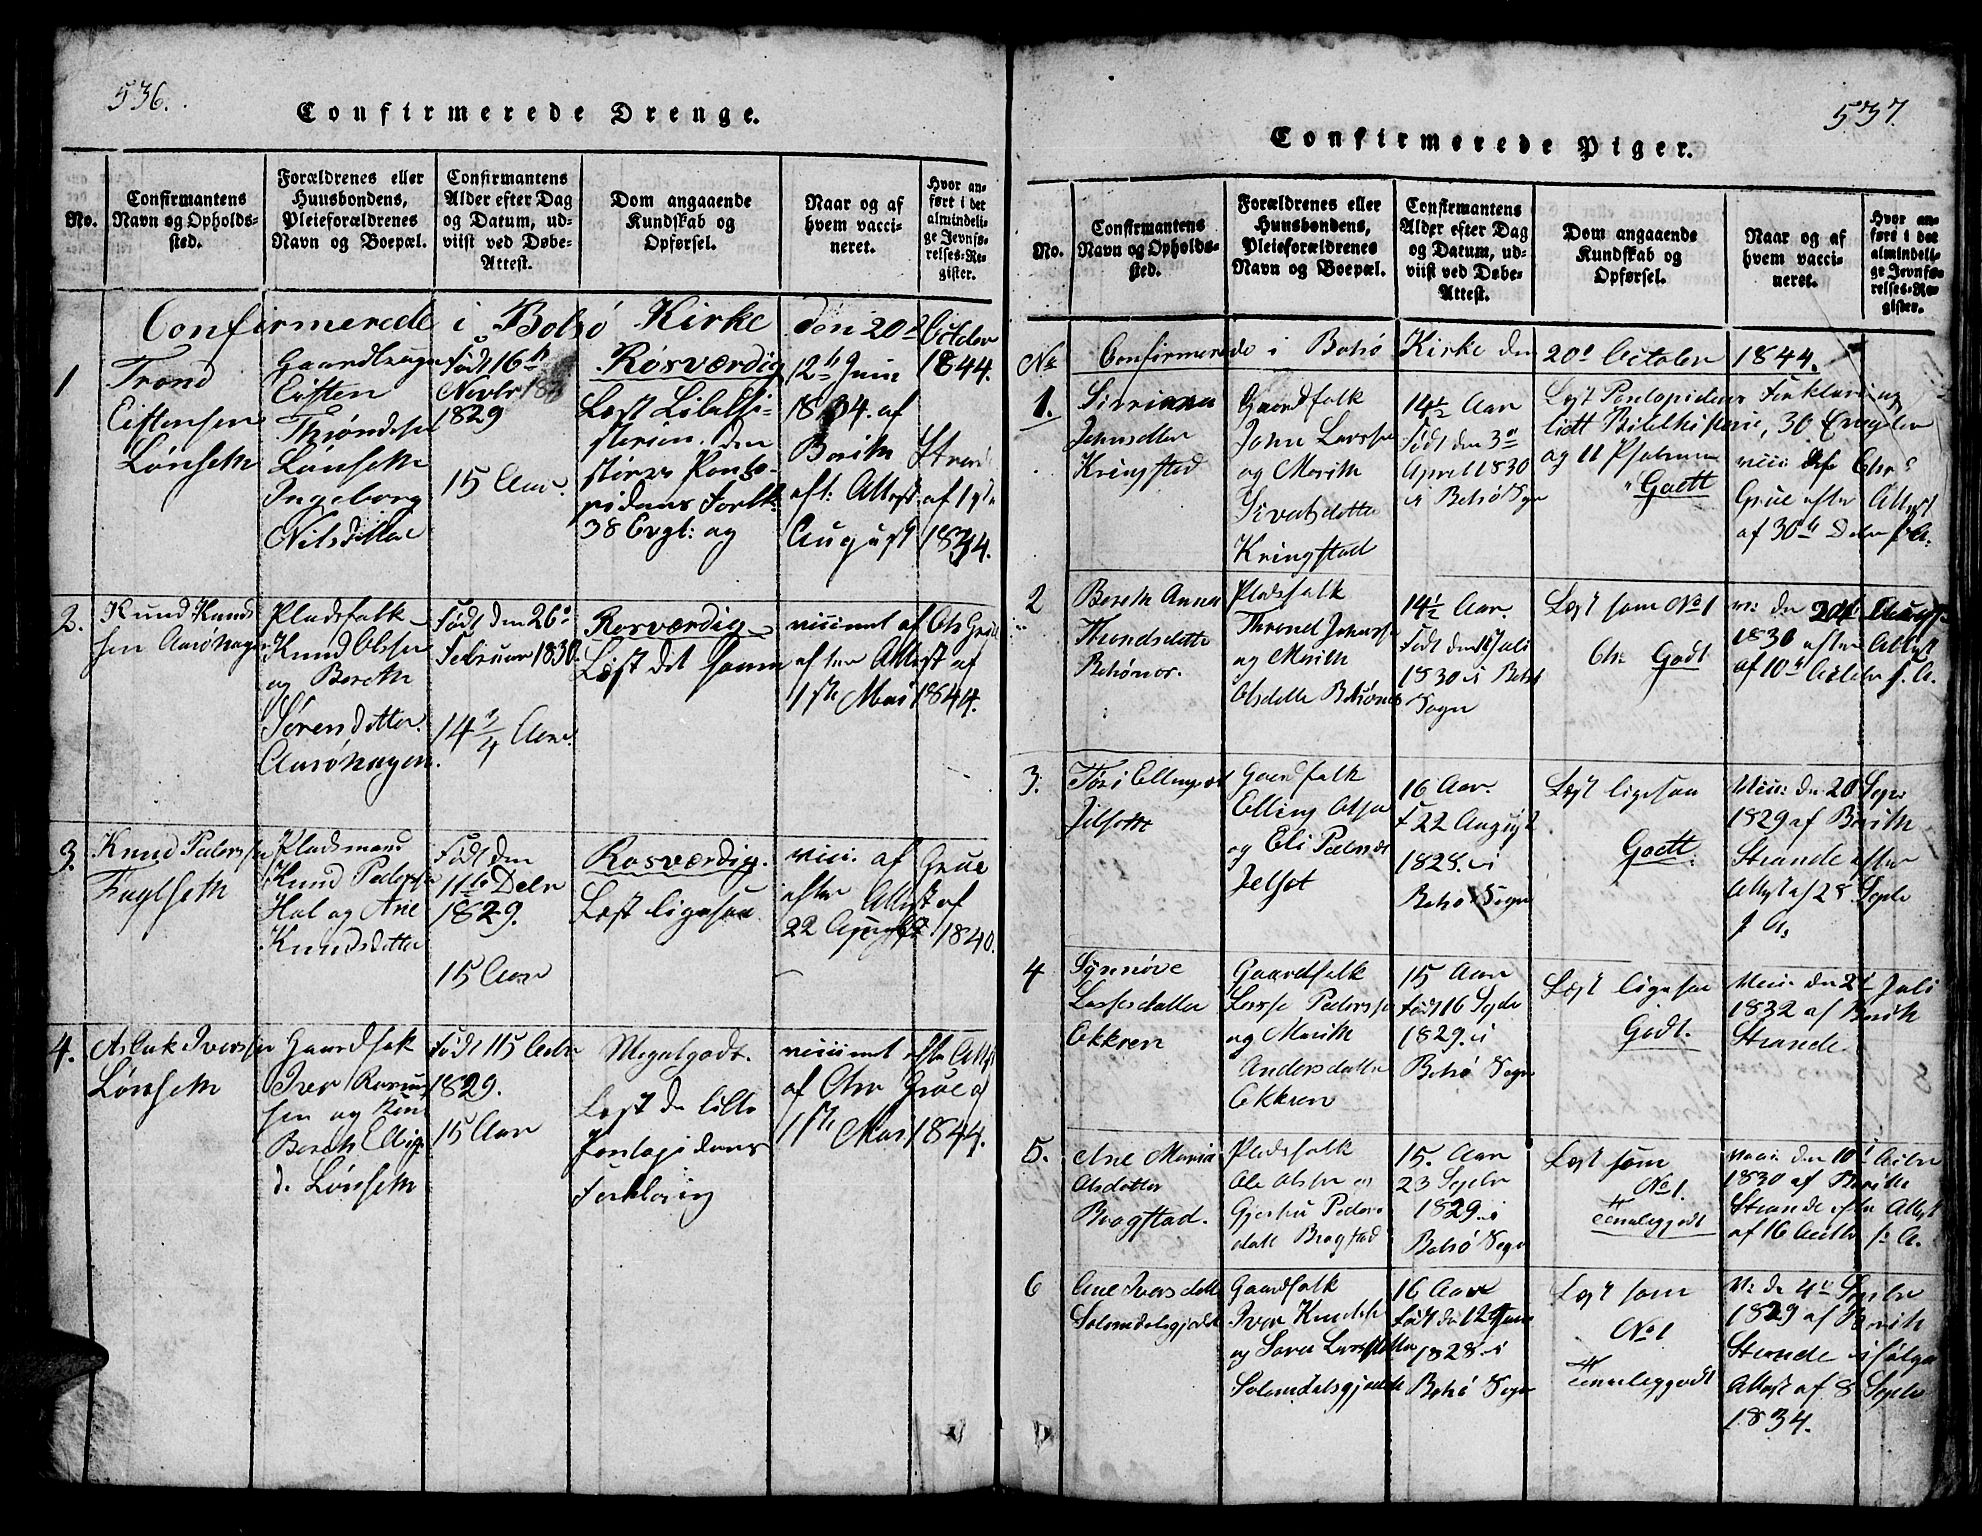 536.
Confirmerede Drenge.
No.
Confirmantens
Navn og Opholds-
sted.
Forældrenes eller
Huusbondens,
Pleieforældrenes
Navn og Boepæl.
Confirmantens
Alder efter Dag
og Datum, ud-
viist ved Døbe-
Attest.
Dom angaaende
Kundskab og
Opførsel.
Naar og af
hvem vacci-
neret.
Hvor an-
ført i det
almindeli-
ge Jevnfø-
relses-Re-
gister.
Confirmerede i Bolsø Kirke den 20de October
1844.
1
Trond
Eistensen
Lønseth
Eisten
Lønseth
Ingeborg
Nilsdatter
Født 16de
Novbr
1829
15 Aar.
Rosværdig
Læst
38 Evgl: og
12te Juni
1834. af
Berith
Strand
eft: Attest
af 1ste
August
1834.
2.
Knud Knud-
sen Aarøhagen
Pladsfolk
Knud Olsen
og Bereth
Sørensdatter
Aarøhagen.
Født den 26de
Februar 1830.
14 3/4 Aar.
Rosværdig
Læst det samme
vaccineret af Chr Grüe
efter Attest af
1ste Mai 1844.
3.
Knud Pedersen
Fuglseth
Pladsmand
Knud Pedersen
Hol og Ane
Knudsdatter
Født den
11te Decbr
1829.
15 Aar
Rosværdig.
Læst ligesaa
vacci. af Grüe
efter Attest af
22 August 1840.
4.
Aslak Iversen
Lønseth
Gaardfolk
Iver Rasmus-
sen og Kone
Bereth
d. Lønseth
Født 15 Octbr
1829.
15 Aar
Megetgodt.
Læst de lille
Pontopidans
Forklaring
vaccineret efter Attest
af Chr Grüe af
1ste Mai 1844.
537.
Confirmerede Piger.
No.
Confirmantens
Navn og Opholds-
sted.
Forældrenes eller
Huusbondens,
Pleieforældrenes
Navn og Boepæl.
Confirmantens
Alder efter Dag
og Datum, ud-
viist ved Døbe-
Attest.
Dom angaaende
Kundskab og
Opførsel.
Naar og af
hvem vacci-
neret.
Hvor an-
ført i det
almindeli-
ge Jevnfø-
relses-Re-
gister.
No Confirmerede i Bolsø Kirke den 20de October 1844.
1.
Johnsdatter
Kringstad
Gaardfolk
John Larssen
og Marith
Sivertsdatter
Kringstad
14½ Aar
Født den 3de
April 1830
i Bolsø Sogn
Læst Pontopidans Forklaring
lidt Bibelhistorie, 30 Evangelier
og 11 Psalmer
Godt
Grüe efter Attest
af 30te Decbr f. A.
2
Bereth Anna
Throndsdatter
Bolsønæs.
Pladsfolk
Thrond Johnsen
og Marith
Olsdatter Bolsønæs
14½ Aar.
Født den Juli
1830 i Bolsø
Sogn
Læst som No 1
Godt
1830 efter Attest
af 10de Octobr f. A.
3.
Jelset
Gaardfolk
Elling Olsen
og Eli Pedersd.
Jelset
16 Aar.
F 22 August
1828. i
Bolsø Sogn
Læst ligesaa
Godt.
Vacci: den 20 Septbr
1829 af Berith
Strande efter
Attest af 28 Septbr
f. A.
4
Synnøve
Lassesdatter
Ekkren
Gaardfolk
Lasse Pedersen
og Marith
Andersdatter
Ekkren
15 Aar
Født 16 Septbr
1829. i
Bolsø Sogn
Læst ligesaa
Godt.
Vacci den 2de Juli
1832 af Berith
Strande
5.
Ane Maria
Olsdatter
Bragstad.
Pladsfolk
Ole Olsen og
Gjertru Peders-
datt Bragstad
15. Aar
23 Septbr
1829. i
Bolsø Sogn
Læst som
No 1.
Temeliggodt
Vacci den 10de Octbr
1830 af Berith
Strande efter Attest
af 16 Octbr f. A.
6
Ane Iversdatter
Solemdalsgjerdet
Gaardfolk
Iver Knudsen
og Sara Larsdatter
Solemdalsgjerdet
16 Aar
Født den 12
1828. i
Bolsø Sogn
Læst som
No 1
Temeliggodt
V: den 4de Septbr
1829 af Berith
Strande ifølge
Attest af 8 Septbr
1834.